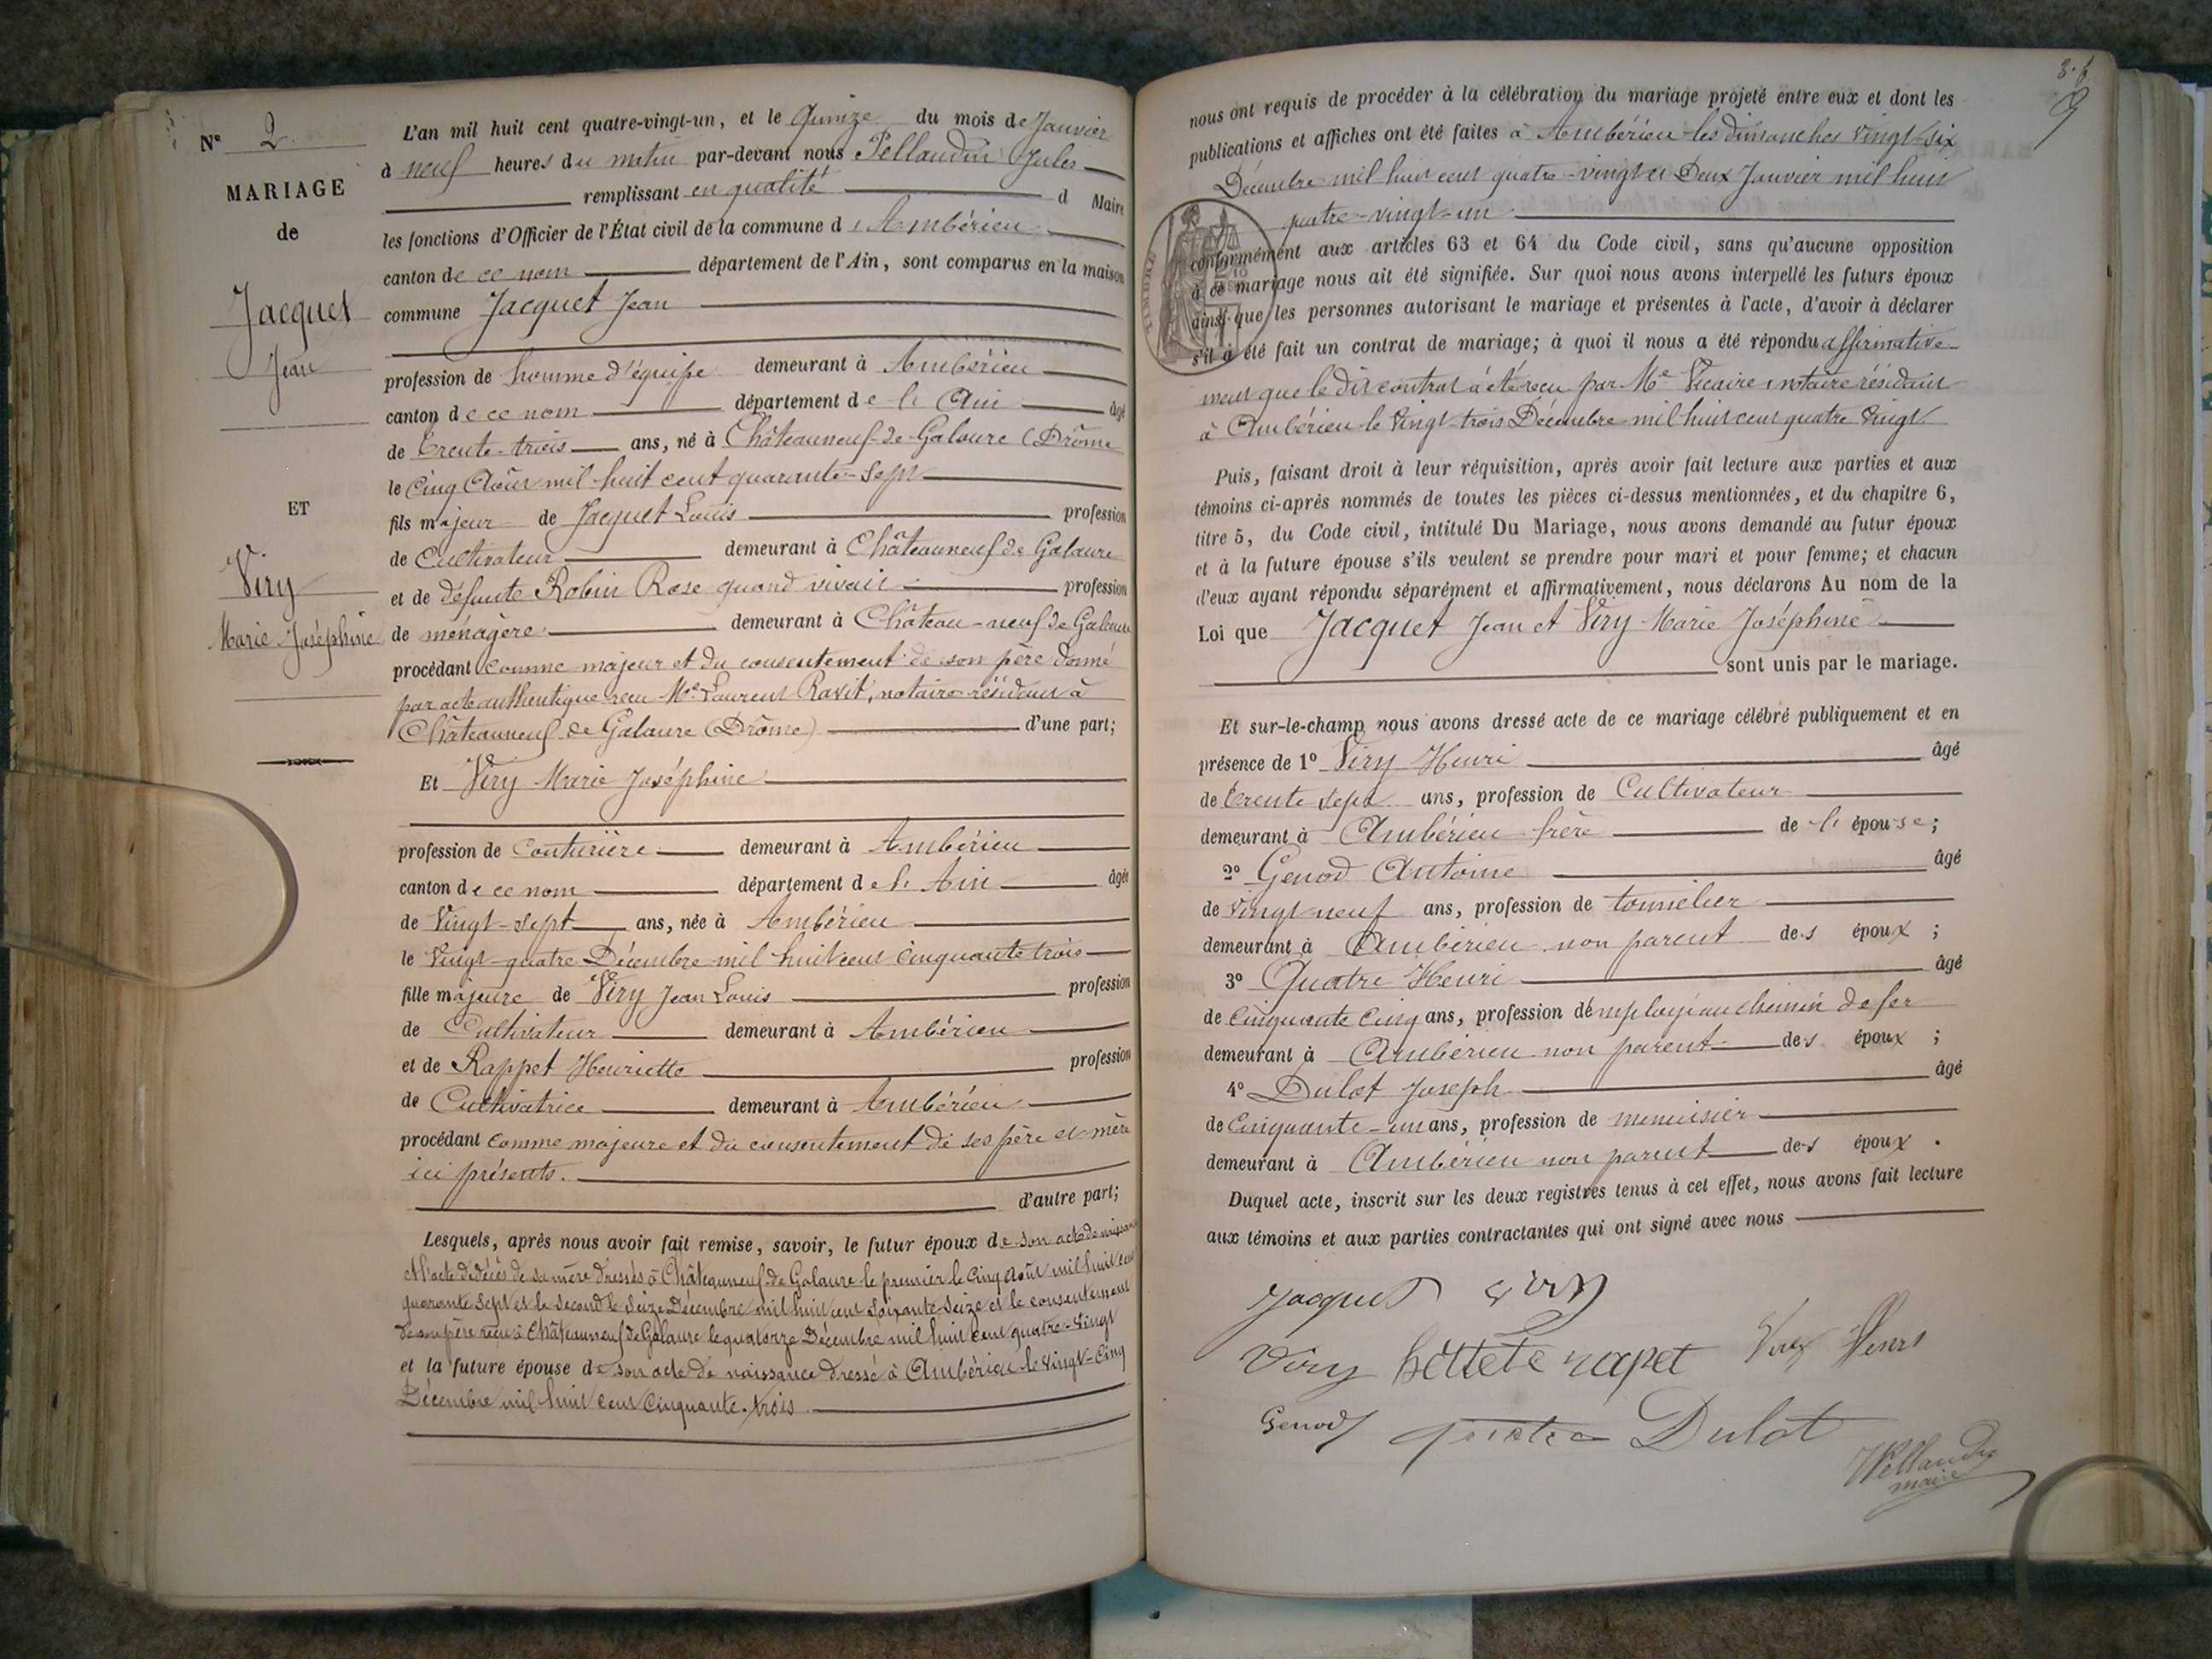 Nº 2
MARIAGE
de
Jacquet
Jean
ET
Viry
Marie Joséphine
L'an mil huit cent quatre-vingt-un, et le Quinze du mois de Janvier
à neuf heures du matin par-devant nous Pellaudin Jules
remplissant en qualité d Maire
les fonctions d'Officier de l'État civil de la commune d'Ambérieu
canton de ce nom département de l'Ain, sont comparus en la maison
commune Jacquet Jean
profession de homme d'équipe demeurant à Ambérieu
canton de ce nom département de l'Ain âgé
de trente-trois ans, né à Châteauneuf-de-Galaure (Drôme
le cinq Août mil huit cent quarante-sept
fils majeur de Jacquet Louis profession
de Cultivateur demeurant à Châteauneuf de Galaure
et de défunte Robin Rose quand vivait profession
de ménagère demeurant à Château-neuf de Galaure
procédant comme majeur et du consentement de son père donné
par acte authentique reçu Me Laurent Ravit, notaire résidant à
Châteauneuf de Galaure (Drôme) d'une part;
Et Viry Marie Joséphine
profession de Couturière demeurant à Ambérieu
canton de ce nom département de l'Ain âgée
de Vingt-sept ans, née à Ambérieu
le Vingt-quatre Décembre mil huit cent cinquante trois
fille majeure de Viry Jean Louis profession
de Cultivateur demeurant à Ambérieu
et de Rappet Henriette profession
de Cultivatrice demeurant à Ambérieu
procédant comme majeure et du consentement de ses père et mère
ici présents.
d'autre part;
Lesquels, après nous avoir fait remise, savoir, le futur époux de son acte de naissance
et l'acte de décès de sa mère dressés à Châteauneuf de Galaure le premier le cinq Août mil huit cent
quarante sept et le second le seize Décembre mil huit cent soixante seize et le consentement
de son père reçu à Châteauneuf de Galaure le quatorze Décembre mil huit cent quatre-vingt
et la future épouse de son acte de naissance dressé à Ambérieu le vingt-cinq
Décembre mil huit cent cinquante-trois
9
nous ont requis de procéder à la célébration du mariage projeté entre eux et dont les
publications et affiches ont été faites à Ambérieu les dimanches vingt-six
Décembre mil huit cent quatre-vingt et Deux Janvier mil huit
quatre-vingt-un
conformément aux articles 63 et 64 du Code civil, sans qu'aucune opposition
à ce mariage nous ait été signifiée. Sur quoi nous avons interpellé les futurs époux
ainsi que les personnes autorisant le mariage et présentes à l'acte, d'avoir à déclarer
s'il a été fait un contrat de mariage; à quoi il nous a été répondu affirmative-
ment que le dit contrat a été reçu par Me Vicaire notaire résidant
à Ambérieu le vingt-trois Décembre mil huit cent quatre vingt
Puis, faisant droit à leur réquisition, après avoir fait lecture aux parties et aux
témoins ci-après nommés de toutes les pièces ci-dessus mentionnées, et du chapitre 6,
titre 5, du Code civil, intitulé Du Mariage, nous avons demandé au futur époux
et à la future épouse s'ils veulent se prendre pour mari et pour femme; et chacun
d'eux ayant répondu séparément et affirmativement, nous déclarons Au nom de la
Loi que Jacquet Jean et Viry Marie Joséphine
sont unis par le mariage.
Et sur-le-champ nous avons dressé acte de ce mariage célébré publiquement et en
présence de 1º Viry Henri âgé
de trente sept ans, profession de Cultivateur
demeurant à Ambérieu frère de l'épouse;
2º Genod Antoine âgé
de vingt neuf ans, profession de tonnelier
demeurant à Ambérieu non parent des époux;
3º Quatre Henri âgé
de cinquante cinq ans, profession d'employé au chemin de fer
demeurant à Ambérieu non parent des époux;
4º Dulot Joseph âgé
de cinquante-un ans, profession de menuisier
demeurant à Ambérieu non parent des époux.
Duquel acte, inscrit sur les deux registres tenus à cet effet, nous avons fait lecture
aux témoins et aux parties contractantes qui ont signé avec nous
Jacquet Viry
Viry hettete rapet Viry Henri
Genod quatre Dulot
Pellaudin
maire